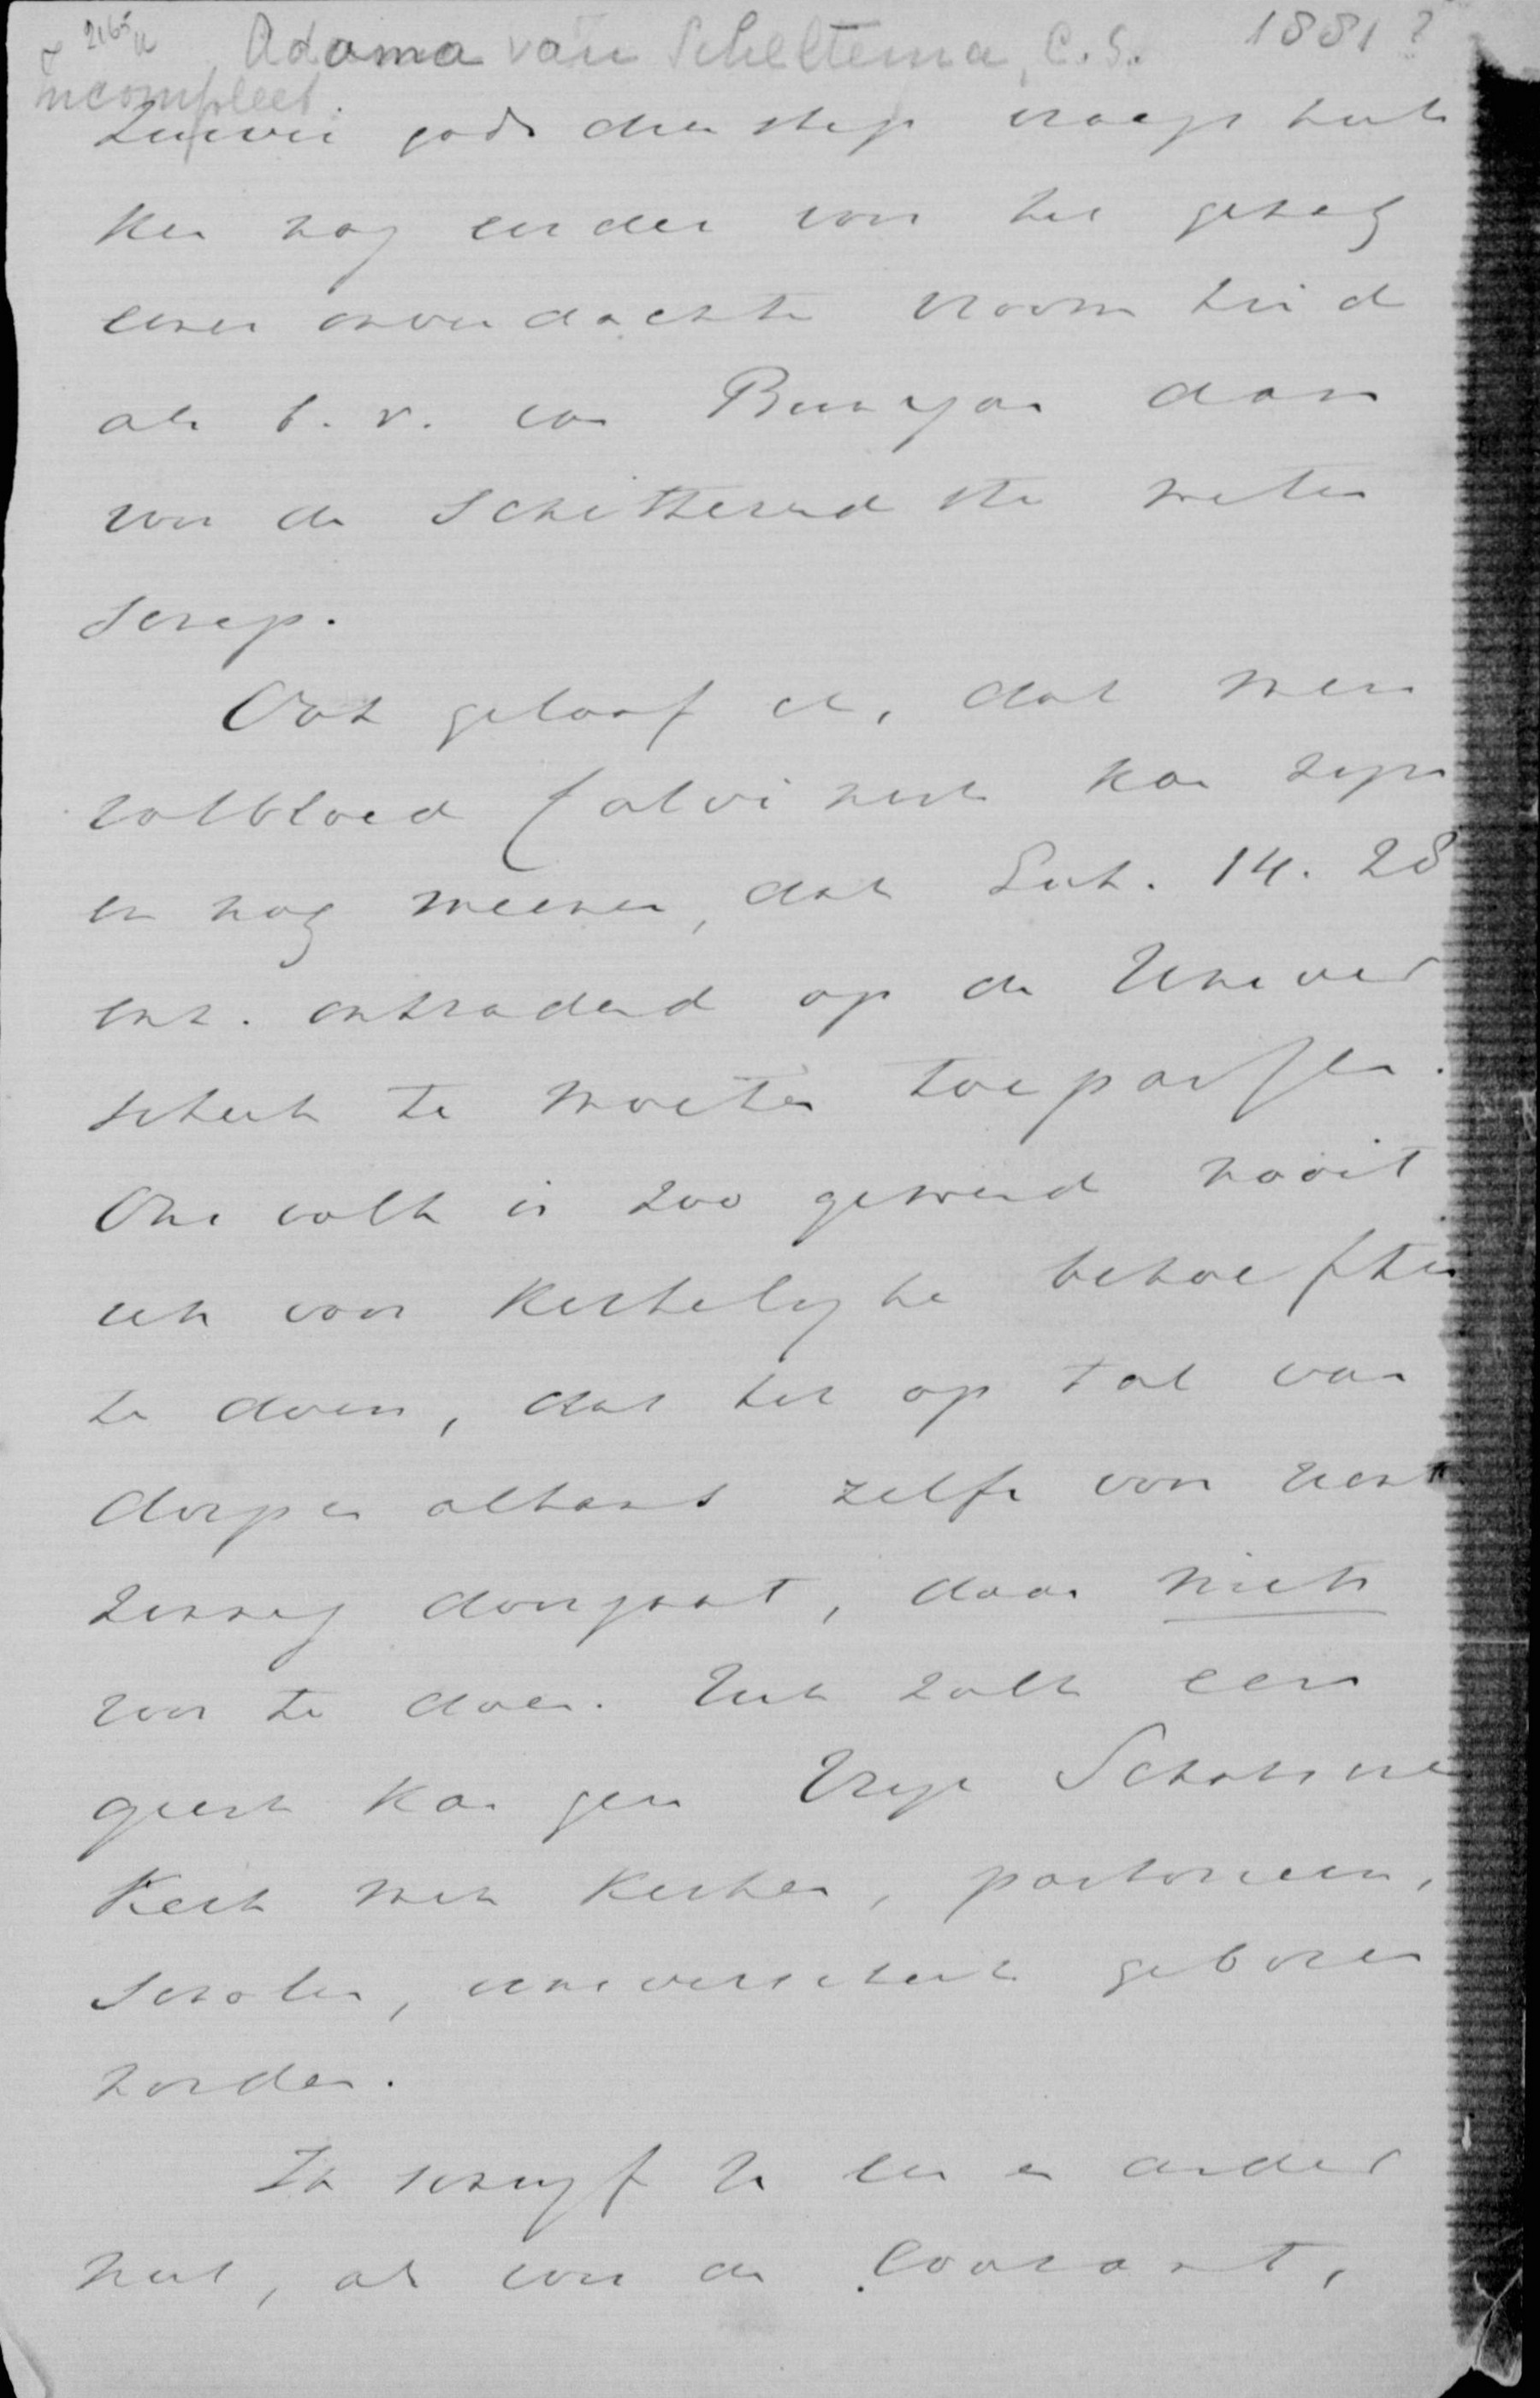 2165a Adama van Scheltema, C.S. 1881?
Incompleet.
zuiver godsdienstige
ken nog eerder voor het gezag
eener onverdachte vroomheid
als b.v. van Bunyan dan
voor de schitterendste weten
schap.
Ook geloof ik, dat men
volbloed Calvinist kan zijn
en nog meenen, dat Luk. 14. 28
enz. ontradend op de Univer
siteit te moeten toepassen.
Ons volk is zoo gewend nooit
iets voor kerkelijke behoeften
te doen, dat het op tal van
dorpen althans zelfs voor
zinnig doorgaat, daar niets
voor te doen. Uit zulk een
geest kan geen Vrije Schotsche
Kerk met kerken, pastorieen,
scholen, universiteit geboren
worden.
Ik schrijf U een en ander
niet, als voor de Courant,